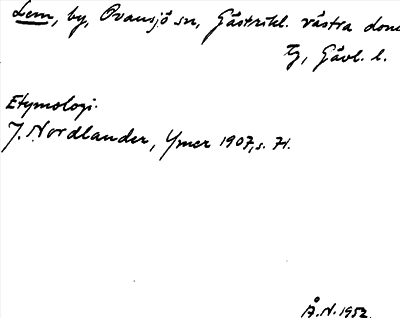 Lem, by, Ovansjö sn, Gästrikl. västra doms
tg, Gävl. l.
Etymologi.
J. Nordlander, Ymer 1907, s. 71.
Å. N. 1952.